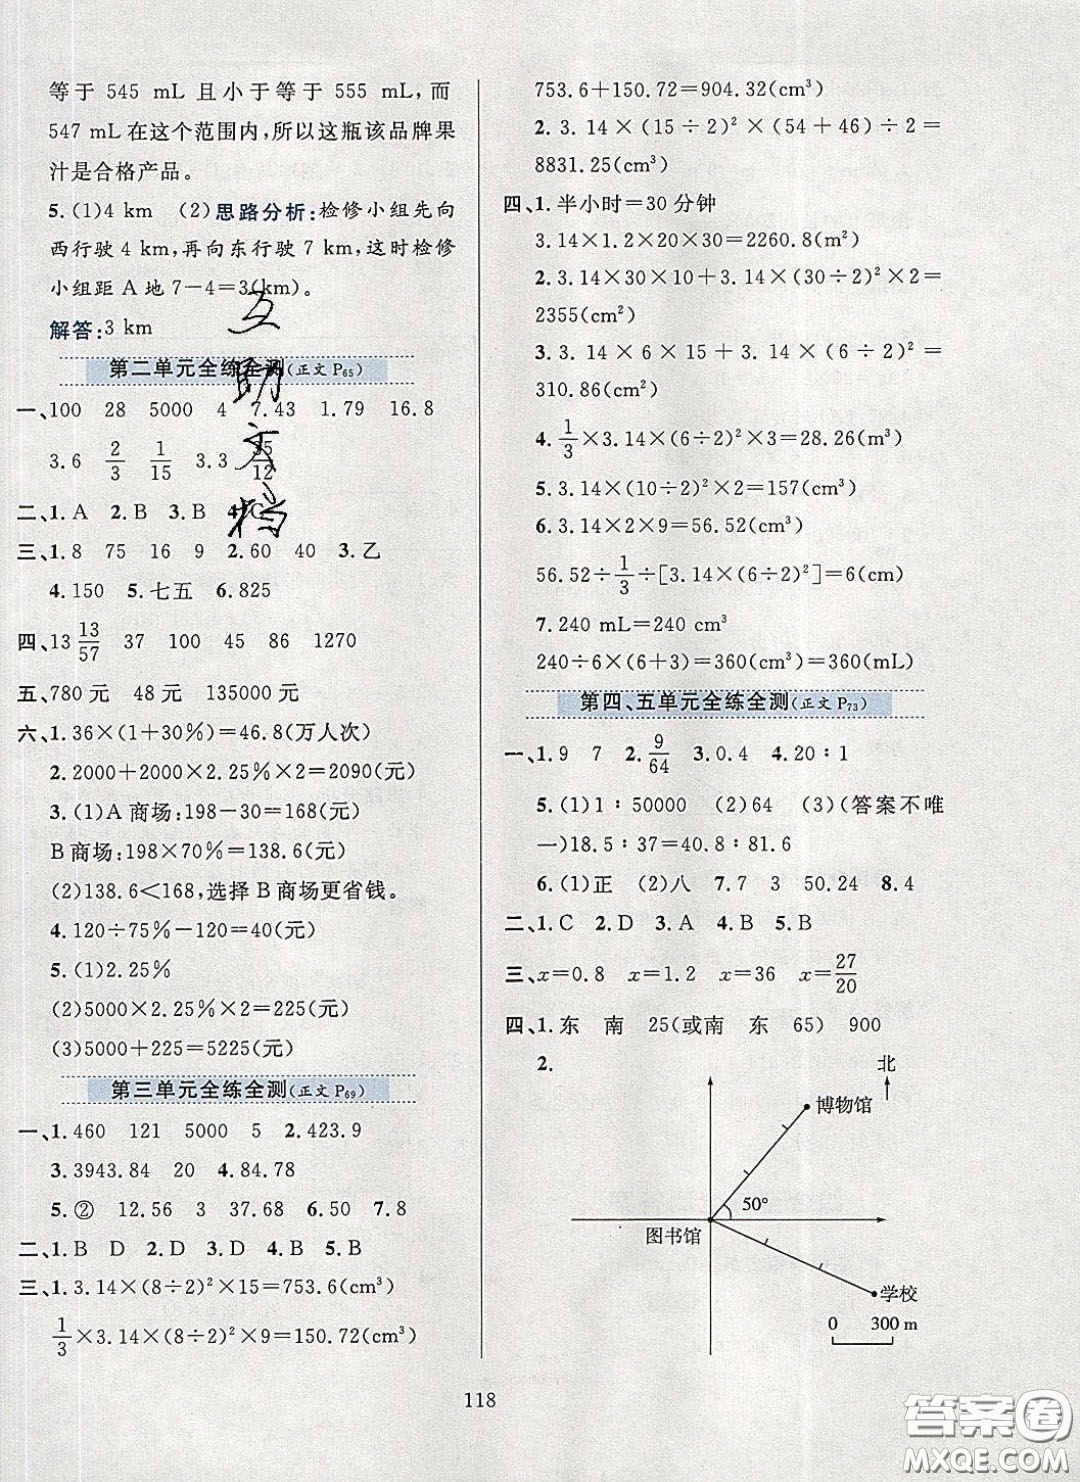 等于 545 mL 且小于等于 555 mL,而
547 mL 在这个范围内,所以这瓶该品牌果
汁是合格产品。
5.(1)4 km (2)思路分析:检修小组先向
西行驶 4 km,再向东行驶 7 km,这时检修
小组距 A 地 7-4=3(km)。
解答:3 km
第二单元全练全测(正文 P65)
一、100 28 5000 4 7.43 1.79 16.8
3.6 2/3 1/15 3.3 35/12
二、1.A 2.B 3.B 4.C
三、1.8 75 16 9 2.60 40 3.乙
4.150 5.七五 6.825
四、13 13/57 37 100 45 86 1270
五、780 元 48 元 135000 元
六、1.36×(1+30%)=46.8(万人次)
2.2000+2000×2.25%×2=2090(元)
3.(1)A 商场:198-30=168(元)
B 商场:198×70%=138.6(元)
(2)138.6<168,选择 B 商场更省钱。
4.120÷75%-120=40(元)
5.(1)2.25%
(2)5000×2.25%×2=225(元)
(3)5000+225=5225(元)
第三单元全练全测(正文 P69)
一、1.460 121 5000 5 2.423.9
3.3943.84 20 4.84.78
5.② 12.56 3 37.68 6.50 7.8
二、1.B D 2.D 3.D 4.B 5.B
三、1.3.14×(8÷2)²×15=753.6(cm³)
1/3×3.14×(8÷2)²×9=150.72(cm³)
753.6+150.72=904.32(cm³)
2.3.14×(15÷2)²×(54+46)÷2=
8831.25(cm³)
四、1.半小时=30 分钟
3.14×1.2×20×30=2260.8(m²)
2.3.14×30×10+3.14×(30÷2)²=
2355(m²)
3.3.14×6×15+3.14×(6÷2)²=
310.86(m²)
4.1/3×3.14×(6÷2)²×3=28.26(m³)
5.3.14×(10÷2)²×2=157(m³)
6.3.14×2×9=56.52(cm³)
56.52÷1/3÷[3.14×(6÷2)²]=6(cm)
7.240 mL=240 cm³
240÷6×(6+3)=360(cm³)=360(mL)
第四、五单元全练全测(正文 P73)
一、1.9 7 2.9/64 3.0.4 4.20∶1
5.(1)1∶50000 (2)64 (3)(答案不唯
一)18.5∶37=40.8∶81.6
6.(1)正 (2)八 7.7 3 50.24 8.4
二、1.C 2.D 3.A 4.B 5.B
三、x=0.8 x=1.2 x=36 x=27/20
四、1.东 南 25(或南 东 65) 900
2.
北
博物馆
50°
图书馆
学校
0 300 m
118
互助文档
答案圈
MXQE.COM